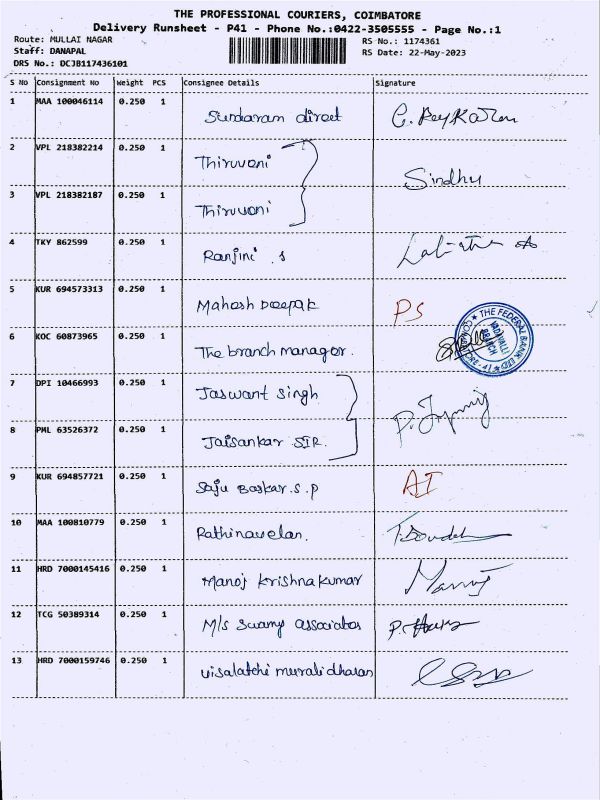 THE PROFESSIONAL COURIERS, COIMBATORE
Delivery Runsheet - P41 - Phone No.:0422-3505555 - Page No.:1
Route: MULLAI NAGAR RS No.: 1174361
Staff: DANAPAL RS Date: 22-May-2023
DRS No.: DCJB117436101
S No Consignment No Weight PCS Consignee Details Signature
1 MAA 100046114 0.250 1 Sundaram direct
2 VPL 218382214 0.250 1 Thiruvoni
Sindhu
3 VPL 218382187 0.250 1 Thiruvoni
4 TKY 862599 0.250 1 Ranjini .s
5 KUR 694573313 0.250 1 Mahesh Deepak PS
6 KOC 60873965 0.250 1 The branch manager. THE FEDERAL BANK LTD VADAVALLI BRANCH COIMBATORE - 41
7 DPI 10466993 0.250 1 Jaswant Singh
8 PML 63526372 0.250 1 Jaisankar SIR.
9 KUR 694857721 0.250 1 Saju Baskar.s.p AI
10 MAA 100810779 0.250 1 Rathinavelan.
11 HRD 7000145416 0.250 1 Manoj Krishnakumar Manoj
12 TCG 50389314 0.250 1 M/s Swamy associates
13 HRD 7000159746 0.250 1 visalatchi muralidharan